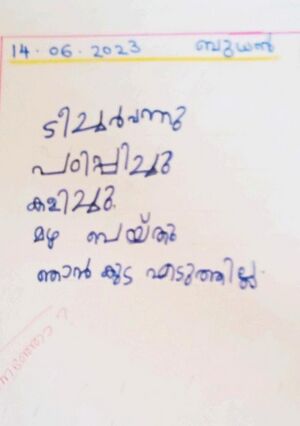 14.06.2023 ബുധൻ
ടീച്ചർവന്നു
പഠിപ്പിച്ചു
കളിച്ചു.
മഴ പെയ്തു
ഞാൻ കുട എടുത്തില്ല.